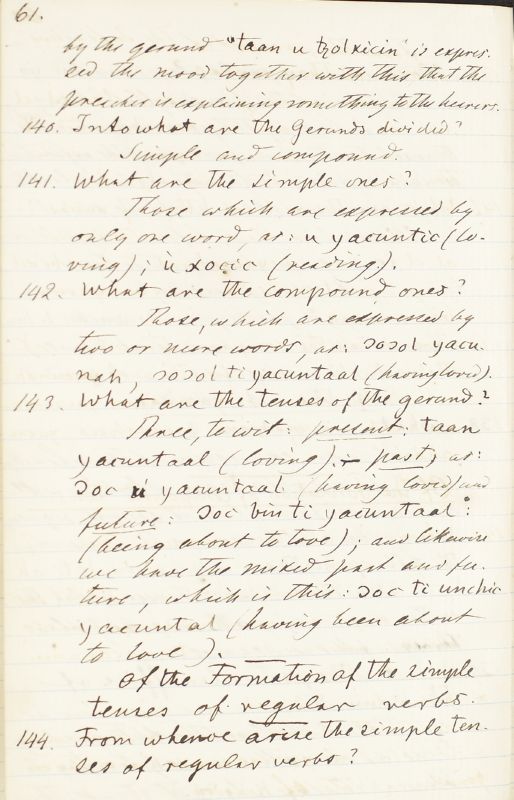 61.
by the gerund "taan u tzolxicin" is expres-
sed the mood together with this that the
preacher is explaining something to the hearers.
140. Into what are the Gerunds divided?
Simple and compound.
141. What are the simple ones?
Those which are expressed by
only one word, as: u yacuntic (lo-
ving); u xocic (reading).
142. What are the compound ones?
Those, which are expressed by
two or more words, as: ɔoɔol yacu-
nah, ɔoɔol ti yacuntaal (having loved).
143. What are the tenses of the gerund?
Three, to wit: present: taan
yacuntaal (loving); past, as:
ɔoc u yacuntaal (having loved) and
future: ɔoc bin ti yacuntaal:
(being about to love); and likewise
we have the mixed past and fu-
ture, which is this: ɔoc ti unchic
yacuntal (having been about
to love).
Of the Formation of the simple
tenses of regular verbs.
144. From whence arise the simple ten-
ses of regular verbs?